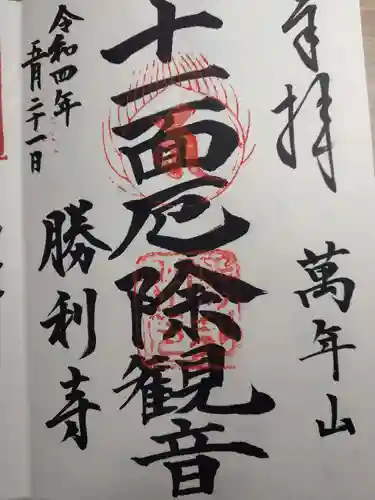 奉拝
萬年山
十一面厄除観音
令和四年
五月二十一日
勝利寺